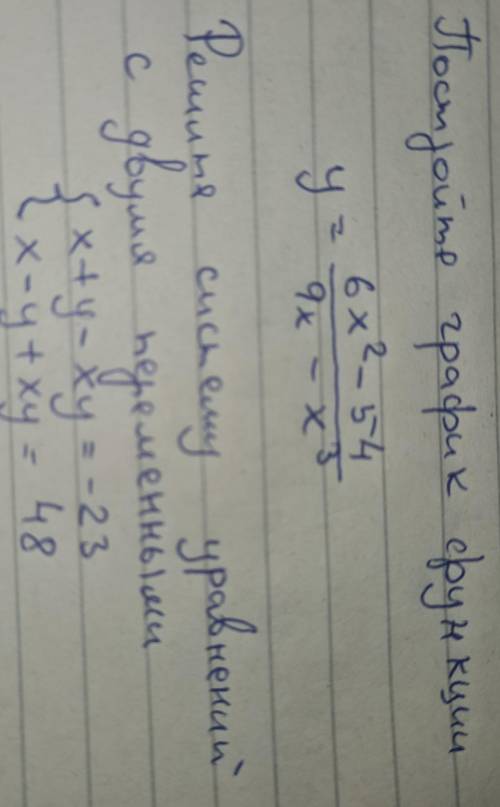 Постройте график функции
y = (6x² - 54)/(9x - x³)
Решите систему уравнений
с двумя переменными
{ x + y - xy = -23
{ x - y + xy = 48